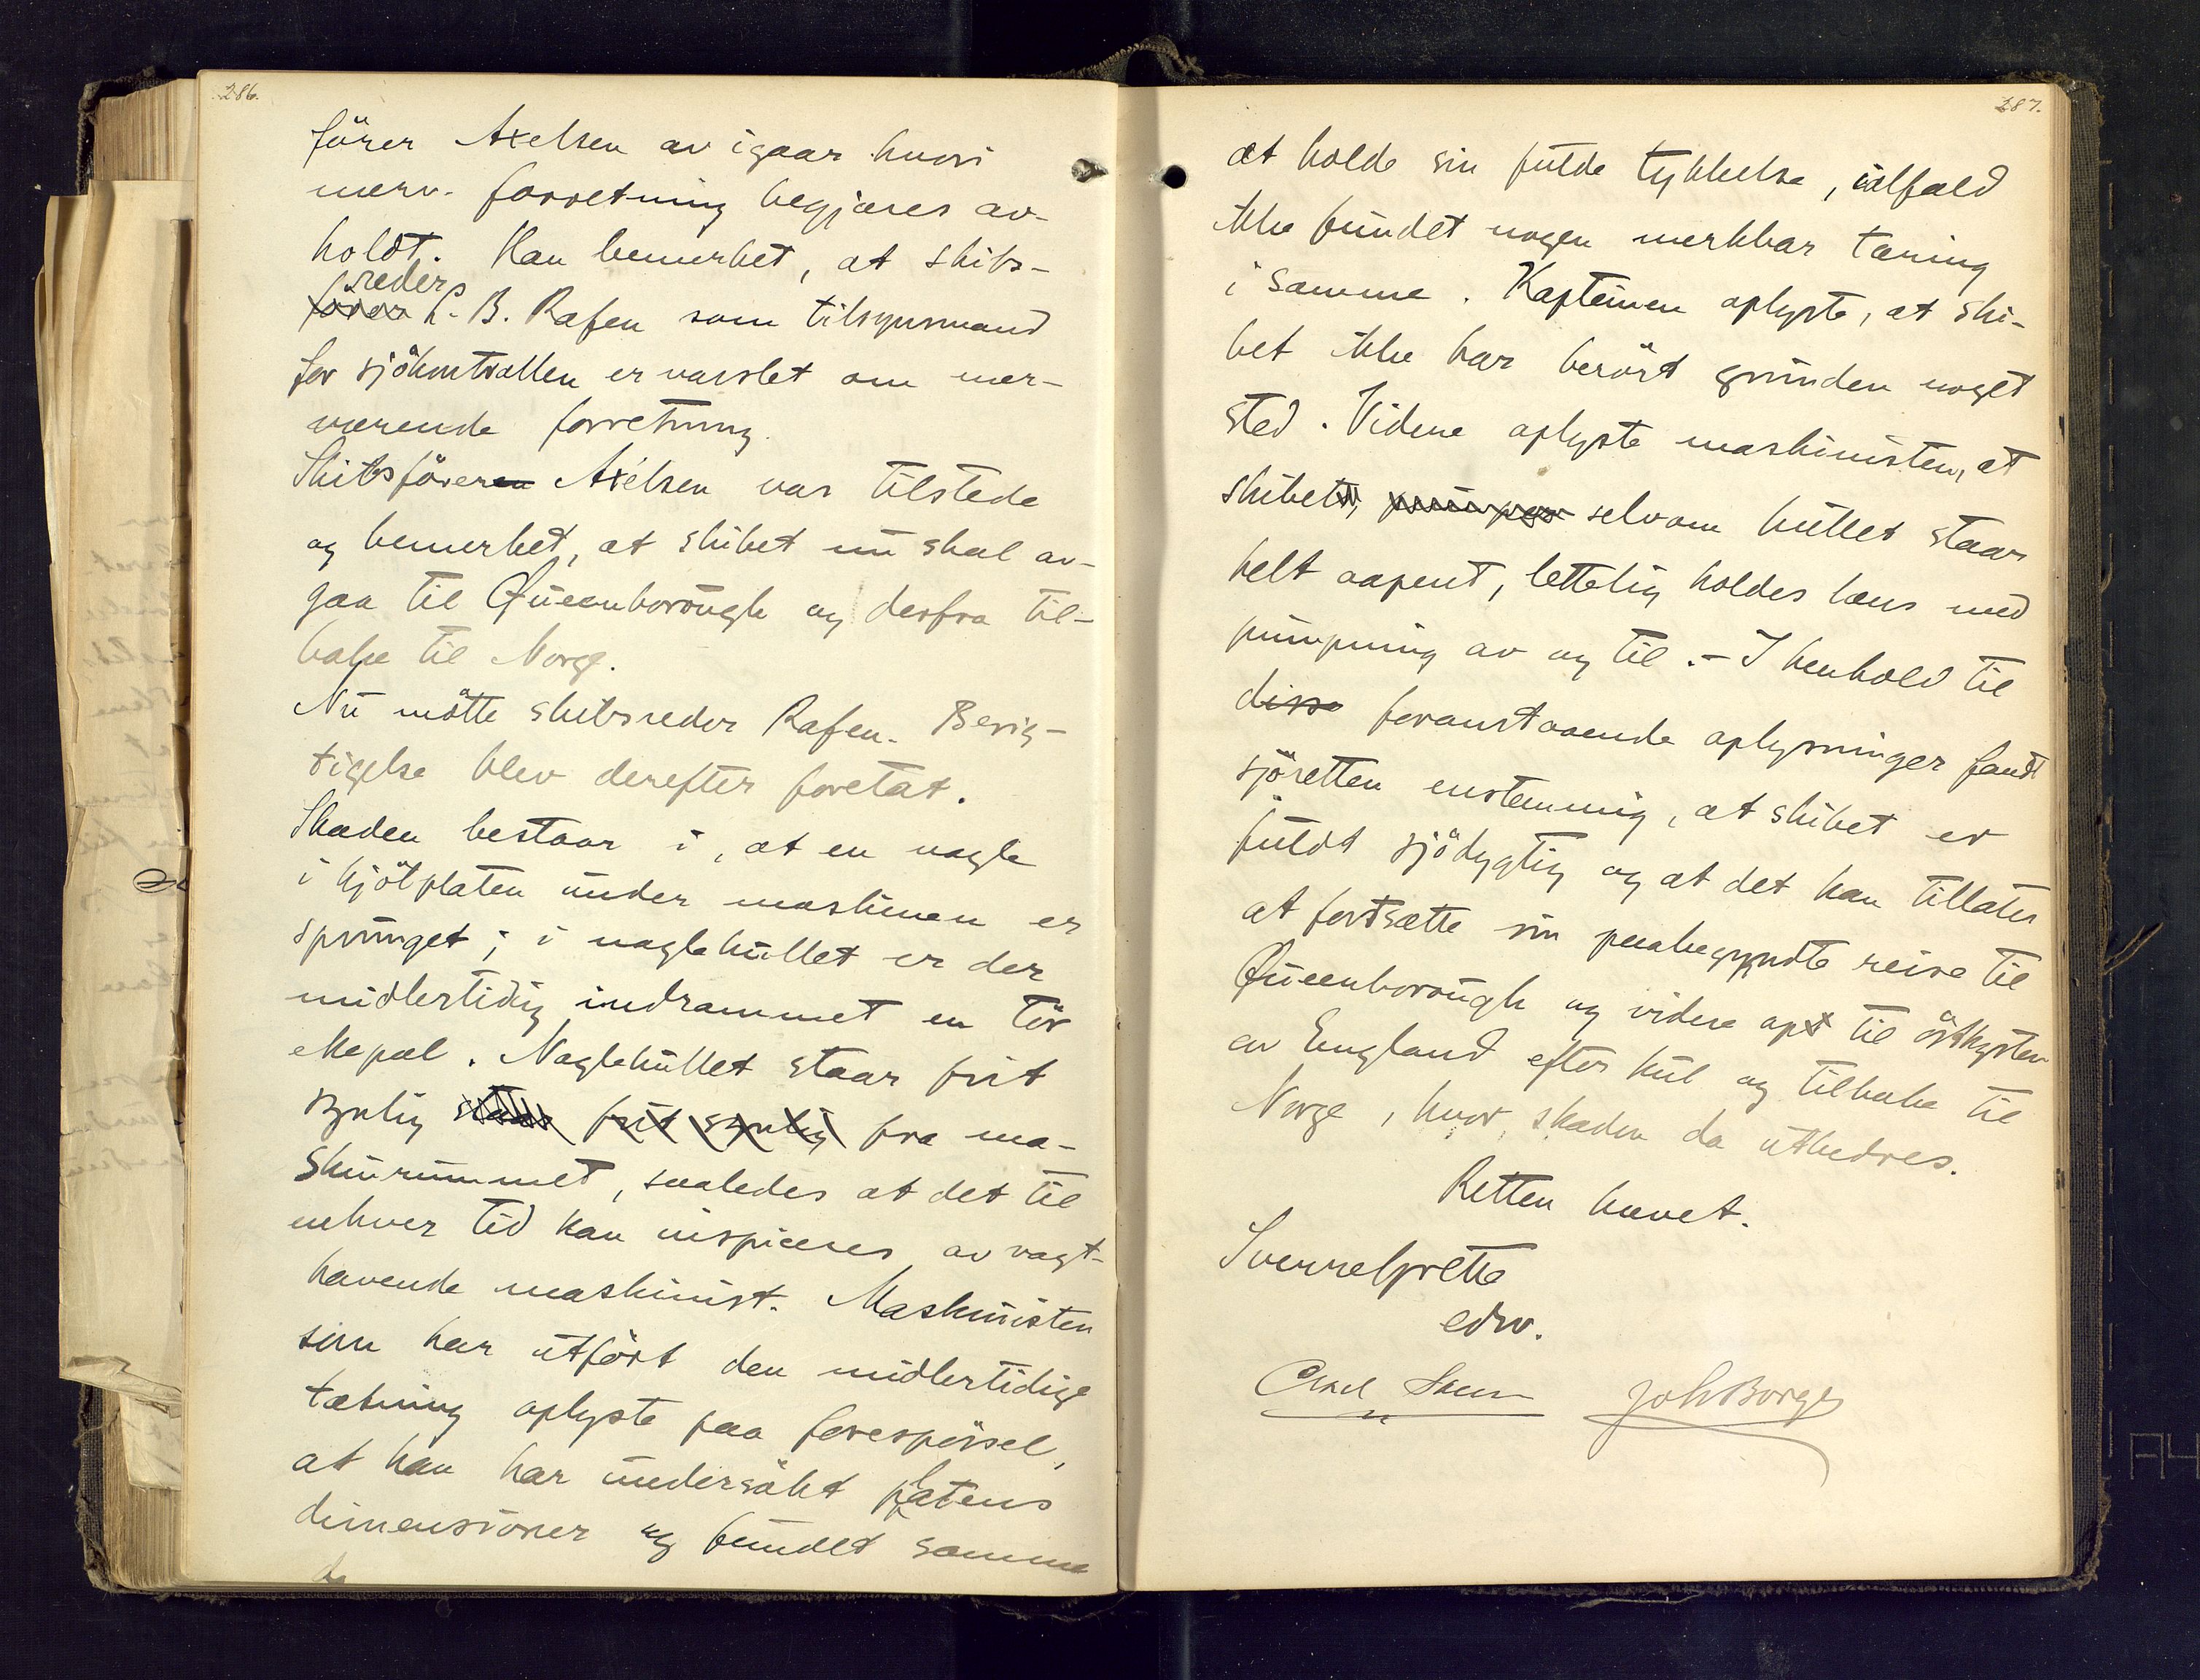 286.
fører Axelsen av igaar hvori
nærv. forretning begjæres av-
holdt. Han bemerket, at skibs-
reder
fører L. B. Rafen som tilsynsmand
for sjökontrollen er varslet om nær-
værende forretning.
Skibsföreren Axelsen var tilstede
og bemerket, at skibet nu skal av-
gaa til Queenborough og derfra til-
bake til Norge.
Nu mötte skibsreder Rafen. Besig-
tigelse blev derefter foretat.
Skaden bestaar i, at en nagle
i kjölplaten under maskinen er
sprunget; i naglehullet er der
midlertidig indrammet en tör
ekepæl. Naglehullet staar frit
synlig staar frit synlig fra ma-
skinrummet, saaledes at det til
enhver tid kan inspiceres av vagt-
havende maskinist. Maskinisten
som har utfört den midlertidige
tætning oplyste paa forespörsel,
at han har undersökt platens
dimensioner og fundet samme
287.
at holde sin fulde tykkelse, ialfald
ikke fundet nogen merkbar tæring
i samme. Kapteinen oplyste, at ski-
bet ikke har berört grunden noget
sted. Videre oplyste maskinisten, at
skibet, selvom hullet staar
helt aapent, lettelig holdes læns med
pumpning av og til. - I henhold til
disse foranstaaende oplysninger fandt
sjöretten enstemmig, at skibet er
fuldt sjödygtig og at det kan tillates
at fortsætte sin paabegyndte reise til
Queenborough og videre opt til östkysten
av England efter kul og tilbake til
Norge, hvor skaden da utbedres.
Retten hævet.
Sverre Grette
edsv.
Joh Borge